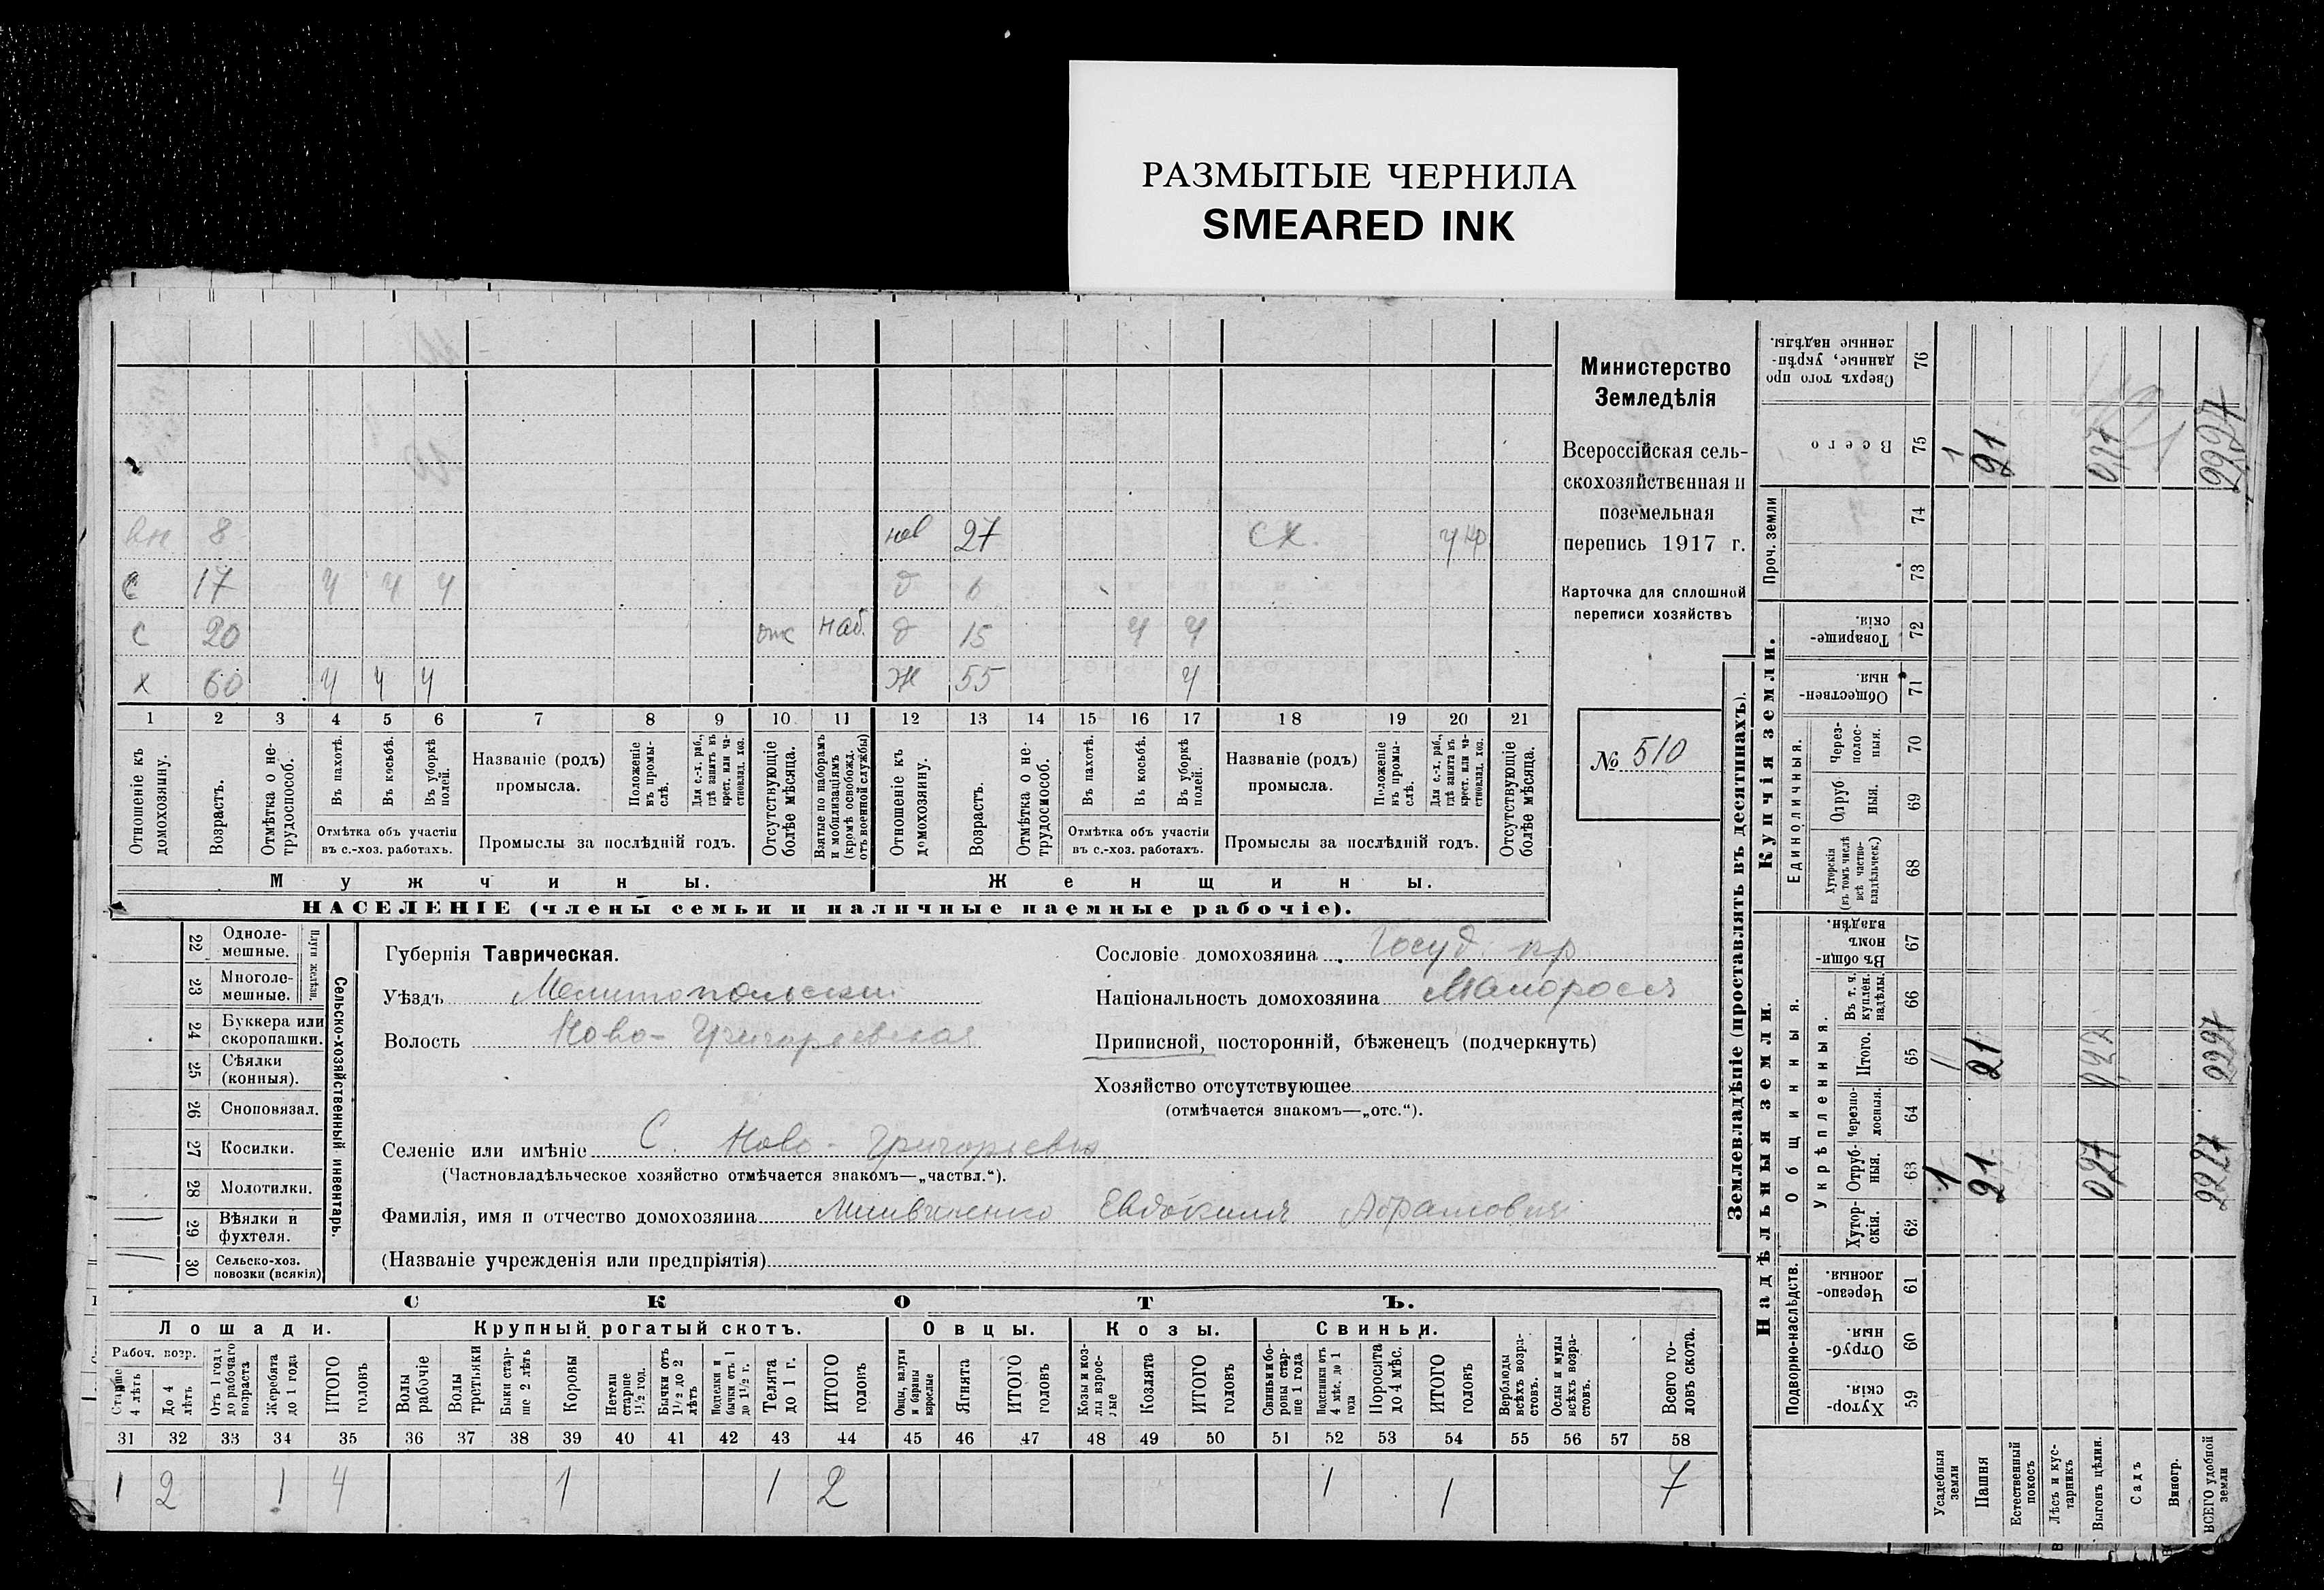 РАЗМЫТЫЕ ЧЕРНИЛА
SMEARED INK
вн 8 нев 27 СХ. у кр
С 17 Ч Ч Ч д 6
С 20 отс наб. д 15 Ч Ч
Х 60 Ч Ч Ч Ж 55 Ч
1 2 3 4 5 6 7 8 9 10 11 12 13 14 15 16 17 18 19 20 21
Отношеніе къ домохозяину.
Возрастъ.
Отмѣтка о нетрудоспособ.
Въ пахотѣ.
Въ косьбѣ.
Въ уборкѣ полей.
Отмѣтка объ участіи въ с.-хоз. работахъ.
Названіе (родъ) промысла.
Положеніе въ промыслѣ.
Для с.-х. раб., гдѣ занятъ въ крест. или частновлад. хоз.
Промыслы за послѣдній годъ.
Отсутствующіе болѣе мѣсяца.
Взятые по наборамъ и мобилизаціямъ (кромѣ освобожд. отъ военной службы)
Отношеніе къ домохозяину.
Возрастъ.
Отмѣтка о нетрудоспособ.
Въ пахотѣ.
Въ косьбѣ.
Въ уборкѣ полей.
Отмѣтка объ участіи въ с.-хоз. работахъ.
Названіе (родъ) промысла.
Положеніе въ промыслѣ.
Для с.-х. раб., гдѣ занята въ крест. или частновлад. хоз.
Промыслы за послѣдній годъ.
Отсутствующіе болѣе мѣсяца.
Мужчины.
Женщины.
НАСЕЛЕНІЕ (члены семьи и наличные наемные рабочіе).
Министерство
Земледѣлія
Всероссійская сель-
скохозяйственная и
поземельная
перепись 1917 г.
Карточка для сплошной
переписи хозяйствъ
№ 510
Сельско-хозяйственный инвентарь.
Плуги желѣзн.
22 Одноле-
мешные.
23 Многоле-
мешные.
24 Буккера или
скоропашки.
25 Сѣялки
(конныя).
26 Сноповязал.
27 Косилки.
28 Молотилки.
29 Вѣялки и
фухтеля.
30 Сельско-хоз.
повозки (всякія)
Губернія Таврическая.
Уѣздъ Мелитопольскій
Волость Ново-Григорьевская
Сословіе домохозяина Госуд. кр
Національность домохозяина Малороссъ
Приписной, посторонній, бѣженецъ (подчеркнуть)
Хозяйство отсутствующее
(отмѣчается знакомъ—„отс.“).
Селеніе или имѣніе С. Ново-Григорьевка
(Частновладѣльческое хозяйство отмѣчается знакомъ—„частвл.“).
Фамилія, имя и отчество домохозяина Евдокимъ Абрамовичъ
(Названіе учрежденія или предпріятія)
СКОТЪ.
Лошади. Крупный рогатый скотъ. Овцы. Козы. Свиньи.
Рабоч. возр.
Старше 4 лѣтъ
До 4 лѣтъ
Отъ 1 года до рабочаго возраста
Жеребята до 1 года
ИТОГО головъ
Волы рабочіе
Волы третьяки
Быки старше 2 лѣтъ
Коровы
Нетели старше 1½ год.
Бычки отъ 1½ до 2 лѣтъ
Подтелки и бычки отъ 1 до 1½ г.
Телята до 1 г.
ИТОГО головъ
Овцы, валухи и бараны взрослые
Ягнята
ИТОГО головъ
Козы и козлы взрослые
Козлята
ИТОГО головъ
Свиньи и боровы старше 1 года
Подсвинки отъ 4 мѣс. до 1 года
Поросята до 4 мѣс.
ИТОГО головъ
Верблюды всѣхъ возрастовъ.
Ослы и мулы всѣхъ возрастовъ.
Всего головъ скота.
31 32 33 34 35 36 37 38 39 40 41 42 43 44 45 46 47 48 49 50 51 52 53 54 55 56 57 58
1 2 1 4 1 1 2 1 1 7
Землевладѣніе (проставлять въ десятинахъ).
Надѣльныя земли.
Купчія земли.
Проч. земли
Подворно-наслѣдств.
Общинныя.
Укрѣпленныя.
Единоличныя.
Хуторскія. 59
Отрубныя. 60
Черезполосныя. 61
Хуторскія. 62
Отрубныя. 63
Черезполосныя. 64
Итого. 65
Въ т. ч. куплен. надѣлы. 66
Въ общинномъ владѣн. 67
Хуторскія (въ томъ числѣ всѣ частновладѣльческ.) 68
Отрубныя. 69
Черезполосныя. 70
Общественныя. 71
Товарищескія. 72
73
74
Всего 75
Сверхъ того проданные, укрѣпленные надѣлы. 76
Усадебныя земли 1 1 1
Пашня 21 21 21
Естественный покосъ
Лѣсъ и кустарникъ
Выгонъ цѣлин. 027
Садъ
Виногр.
ВСЕГО удобной земли 2227 2227